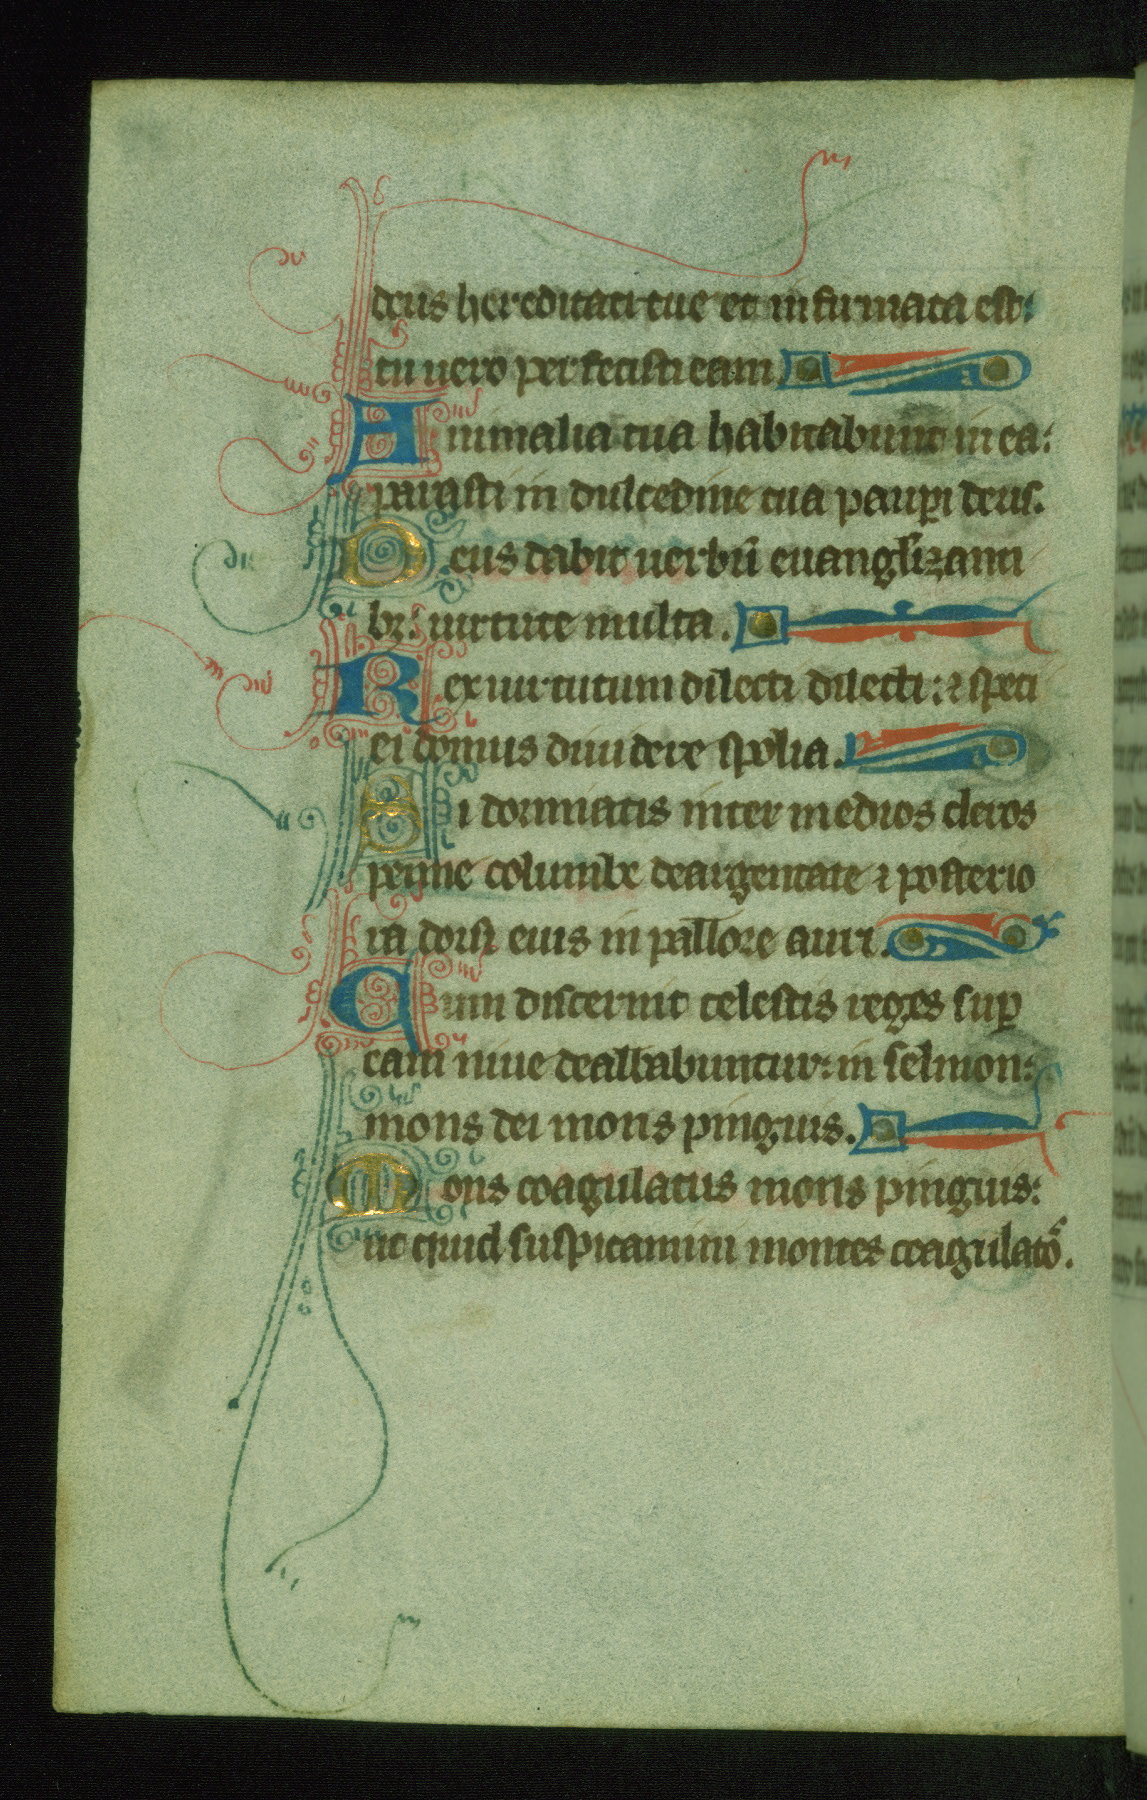 deus hereditati tue et infirmata est:
tu uero perfecisti eam
Animalia tua habitabunt in ea:
parasti in dulcedine tua paupi deus.
Deus dabit uerbū euanglizanti
bꝫ: uirtute multa.
Rex uirtutum dilecti dilecti: ⁊ speci
ei domus diuidere spolia.
Si dormiatis inter medios cleros
penne columbe deargentate ⁊ posterio
ra dorsi eius in pallore auri.
Cum discernit celestis reges suꝑ
eam niue dealbabuntur: in selmon:
mons dei mons pinguis.
Mons coagulatus mons pinguis:
ut quid suspicamini montes coagulatos.